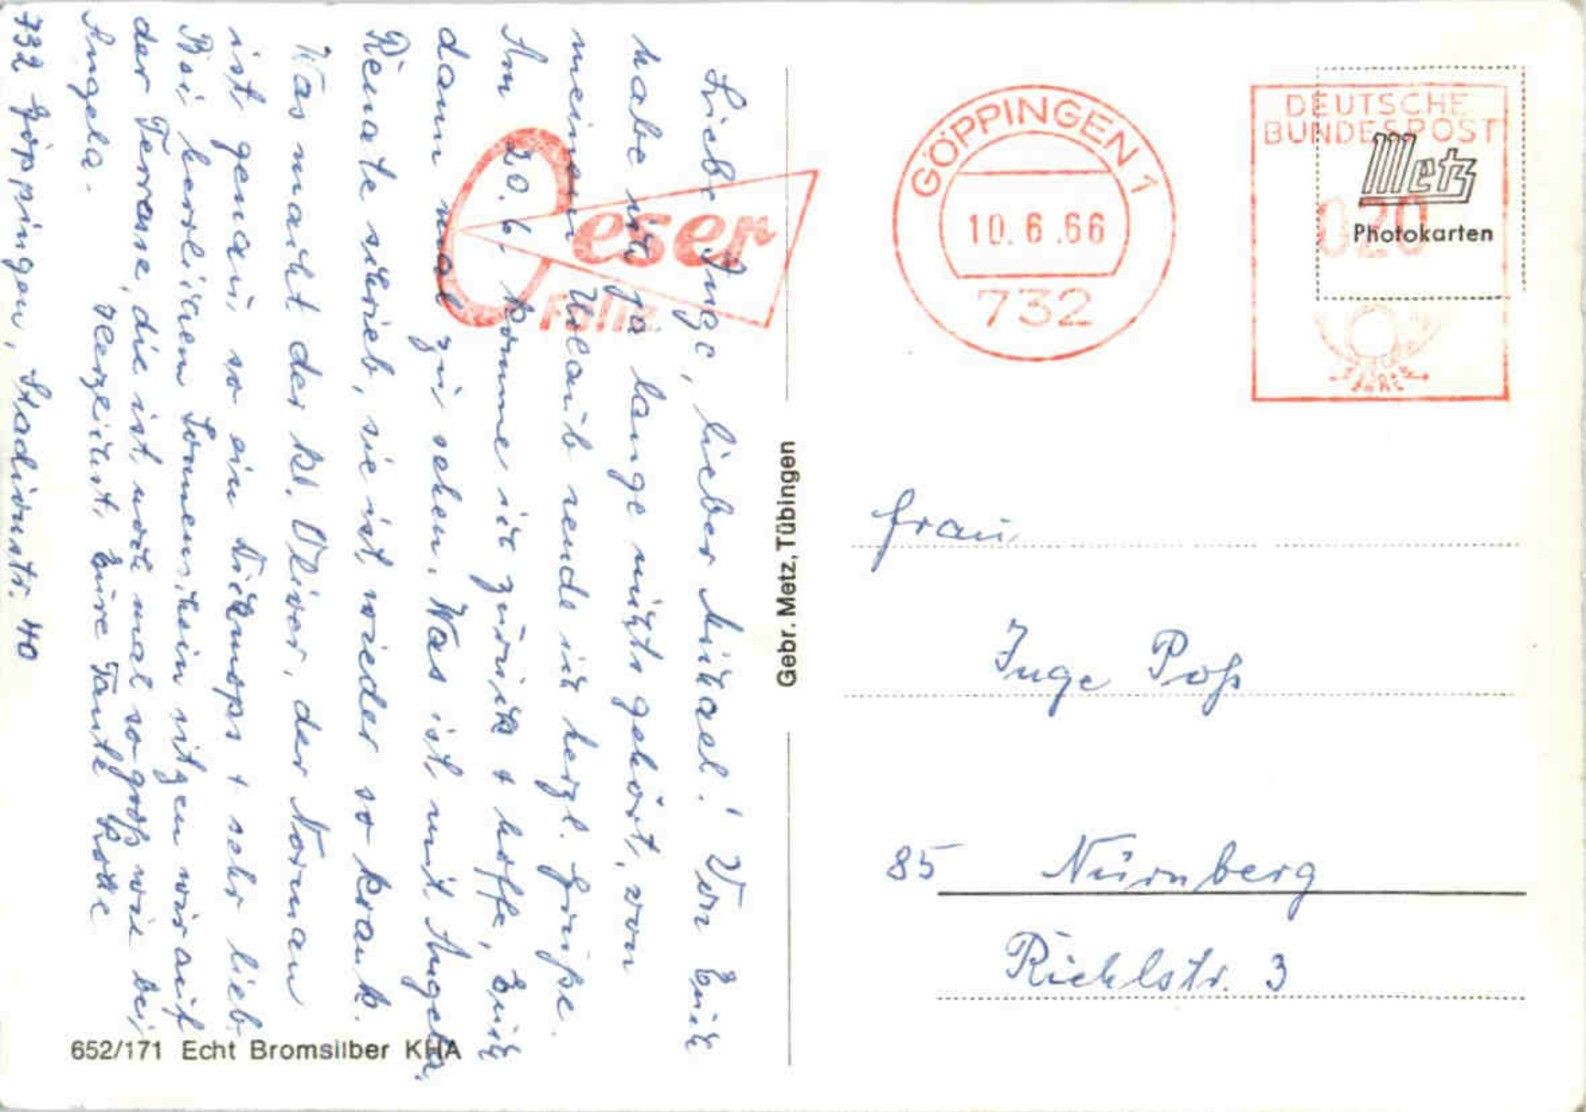 Liebe Inge, lieber Michael! Von Euch
habe ich ja lange nichts gehört, von
meinem Urlaub sende ich herzl. Grüße.
Am 20.6. komme ich zurück + hoffe, Euch
dann mal zu sehen. Was ist mit Angela,
Renate schrieb, sie ist wieder so krank.
Was macht der kl. Oliver, der Norman
ist genau so ein Dickmops + sehr lieb
Bei herrlichem Sonnenschein sitzen wir auf
der Terrasse, die ist noch mal so groß wie bei
Angela. Herzlichst, Eure Tante
732 Göppingen, Stadionstr. 40
Geser
GÖPPINGEN 1
10.6.66
732
DEUTSCHE
BUNDESPOST
020
Metz
Photokarten
Gebr. Metz, Tübingen
Frau
Inge Poß
85 Nürnberg
Richlstr. 3
652/171 Echt Bromsilber KHA